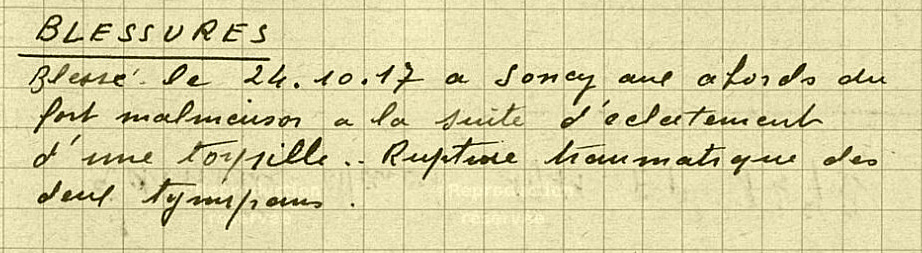 BLESSURES
Blessé le 24.10.17 a Soncy aux abords du
fort malmaison a la suite d'eclatement
d'une torpille.. Rupture traumatique des
deux tympans.
Reproduction